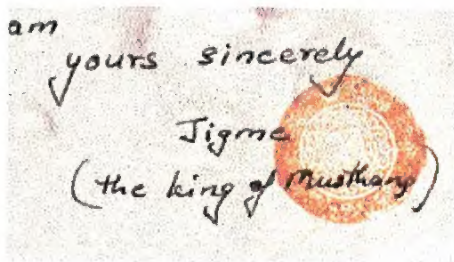 am
yours sincerely
Jigme
(the king of Musthang)